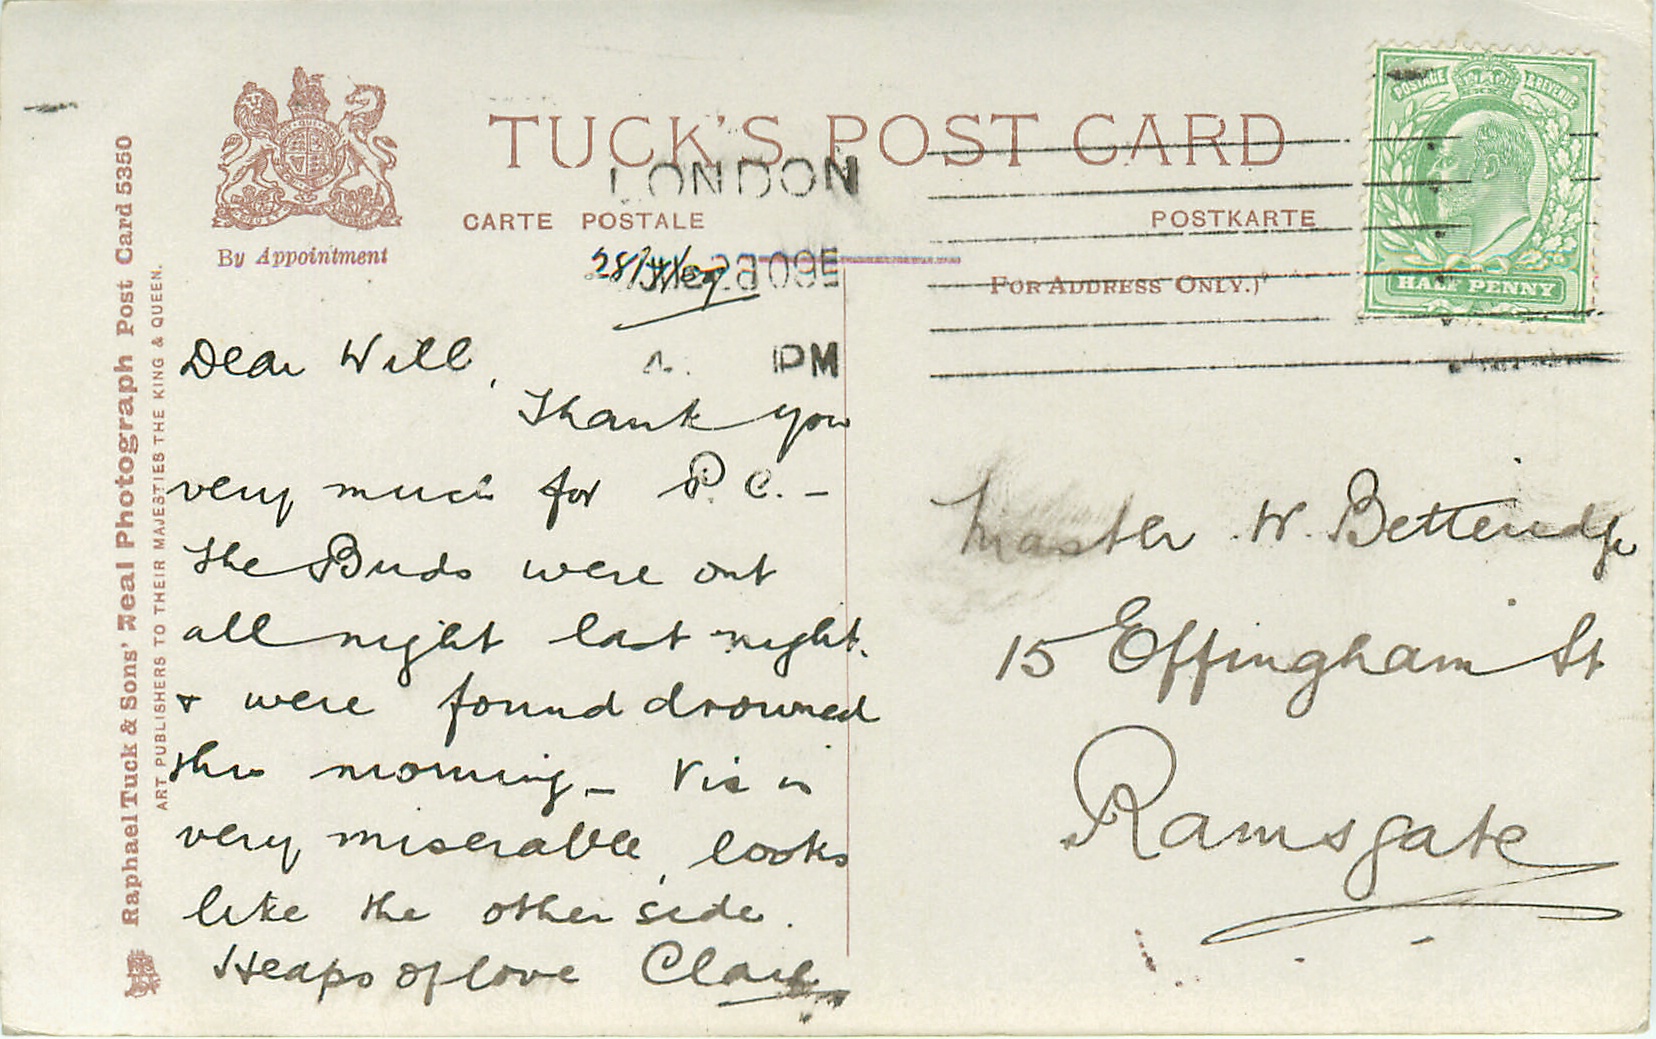 TUCK'S POST CARD
CARTE POSTALE
POSTKARTE
(FOR ADDRESS ONLY.)
By Appointment
Raphael Tuck & Sons' "Real Photograph" Post Card 5350
ART PUBLISHERS TO THEIR MAJESTIES THE KING & QUEEN.
POSTAGE & REVENUE
HALF PENNY
LONDON
PM
Dear Will,
Thank you
very much for P.C. -
The Buds were out
all night last night.
& were found drowned
this morning - Vic is
very miserable, looks
like the other side.
Heaps of love
Master W. Betteridge
15 Effingham St
Ramsgate